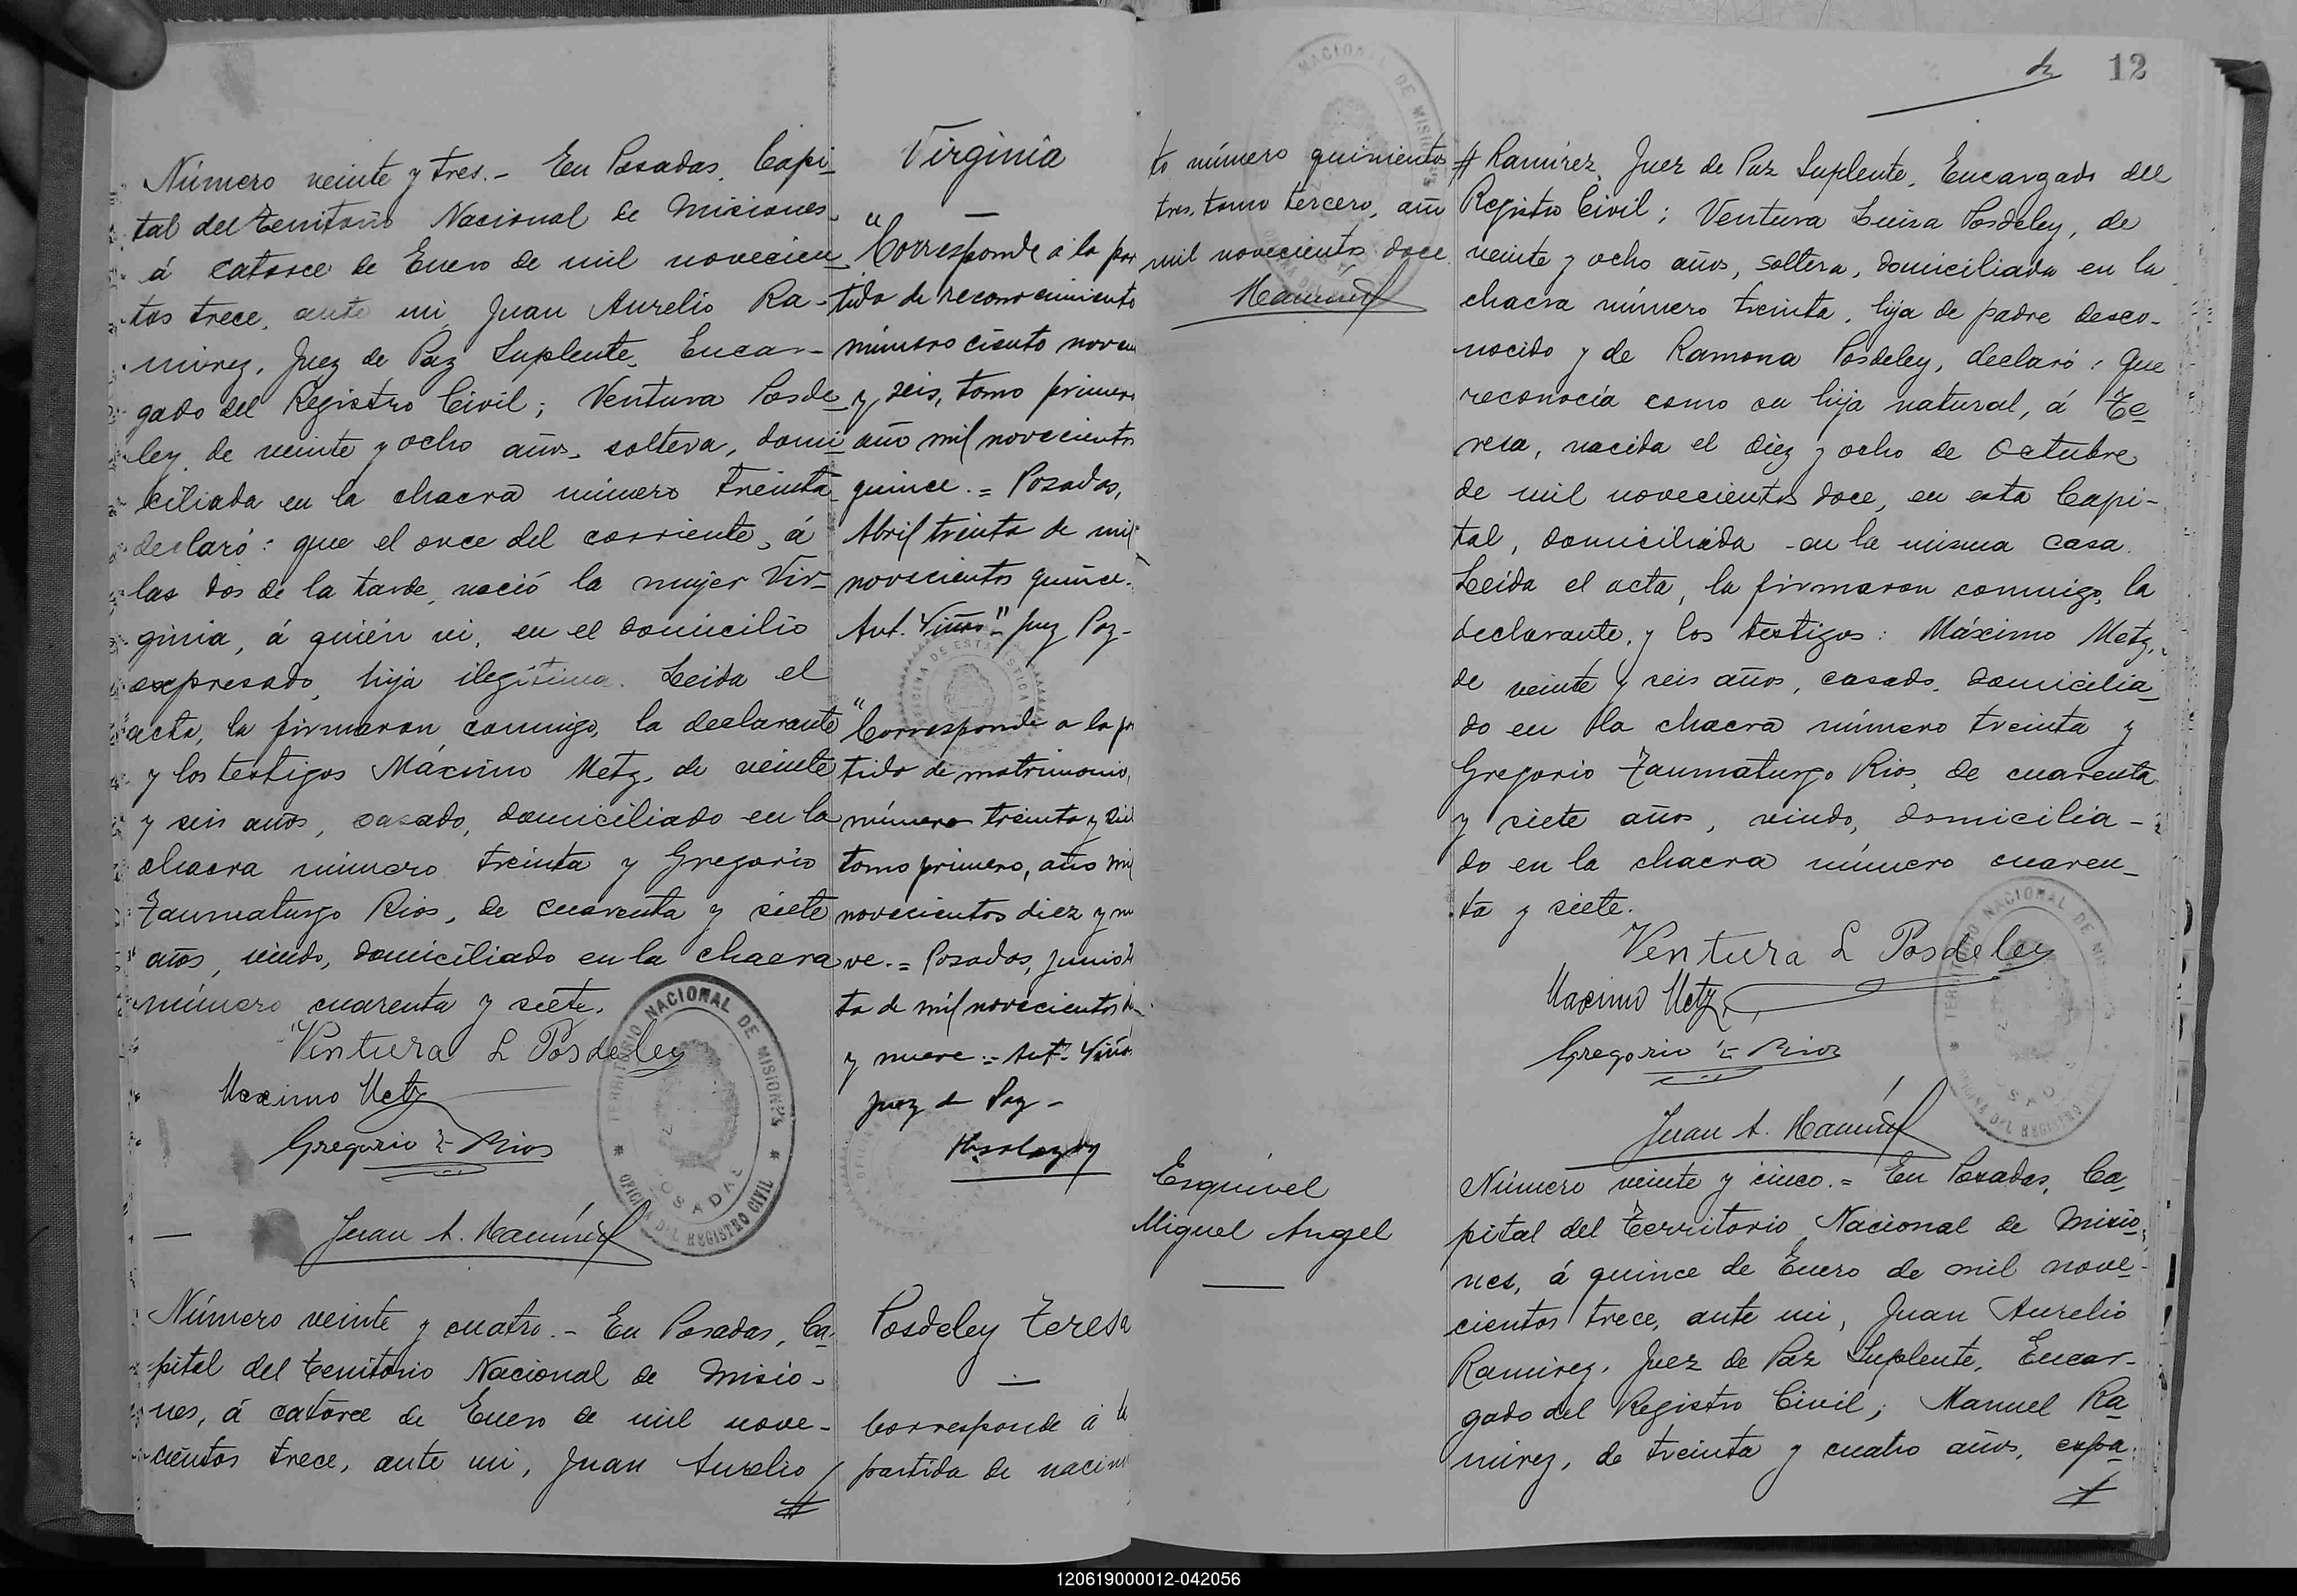 Número veinte y tres.- En Posadas, Capi-
tal del territorio Nacional de Misiones
á catorce de Enero de mil novecien-
tos trece, ante mi, Juan Aurelio Ra-
mirez, Juez de Paz Suplente, Encar-
gado del Registro Civil; Ventura Posde-
ley, de veinte y ocho años, soltera, domi-
ciliada en la chacra número treinta
declaró: que el once del corriente, á
las dos de la tarde, nació la mujer Vir-
ginia, á quién vi, en el domicilio
expresado, hija ilegitima. Leida el
acta, la firmaron conmigo, la declarante
y los testigos Máximo Metz, de veinte
y seis años, casado, domiciliado en la
chacra número treinta y Gregorio
Taumaturgo Rios, de cuarenta y siete
años, viudo, domiciliado en la chacra
número cuarenta y siete.
Ventura L Posdeley
Maximo Metz
Gregorio T. Rios
Juan A. Ramírez
TERRITORIO NACIONAL DE MISIONES
POSADAS
OFICINA DEL REGISTRO CIVIL
Número veinte y cuatro.- En Posadas, Ca-
pital del territorio Nacional de Misio-
nes, á catorce de Enero de mil nove-
cientos trece, ante mi, Juan Aurelio
#
Virginia
"Corresponde a la par
tida de reconocimiento
número ciento noven
y seis, tomo primero
año mil novecientos
quince.= Posadas,
Abril treinta de mil
novecientos quince.
Ant. Viñas" Juez Paz-
"Corresponde a la pa
tida de matrimonio,
número treinta y
tomo primero, año mil
novecientos diez y nu
ve.= Posadas, Junio
ta de mil novecientos
y nueve.= Ant. Viñas
Juez de Paz-
Posdeley Teresa
Corresponde á la
partida de nacim
to número quinientos
tres, tomo tercero, año
mil novecientos doce.
Ramírez
Esquivel
Miguel Angel
12
# Ramírez, Juez de Paz Suplente, Encargado del
Registro Civil; Ventura Luisa Posdeley, de
veinte y ocho años, soltera, domiciliada en la
chacra número treinta, hija de padre desco-
nocido y de Ramona Posdeley, declaró: Que
reconocía como su hija natural, á Te-
resa, nacida el diez y ocho de Octubre
de mil novecientos doce, en esta Capi-
tal, domiciliada en la misma casa.
Leida el acta, la firmaron conmigo, la
declarante, y los testigos: Máximo Metz,
de veinte y seis años, casado, domicilia-
do en la chacra número treinta y
Gregorio Taumaturgo Rios, de cuarenta
y siete años, viudo, domicilia-
do en la chacra número cuaren-
ta y siete.
Ventura L Posdeley
Maximo Metz
Gregorio T. Rios
Juan A. Ramírez
Número veinte y cinco.= En Posadas, Ca-
pital del territorio Nacional de Misio-
nes, á quince de Enero de mil nove-
cientos trece, ante mi, Juan Aurelio
Ramirez, Juez de Paz Suplente, Encar-
gado del Registro Civil; Manuel Ra-
mirez, de treinta y cuatro años, espa-
120619000012-042056